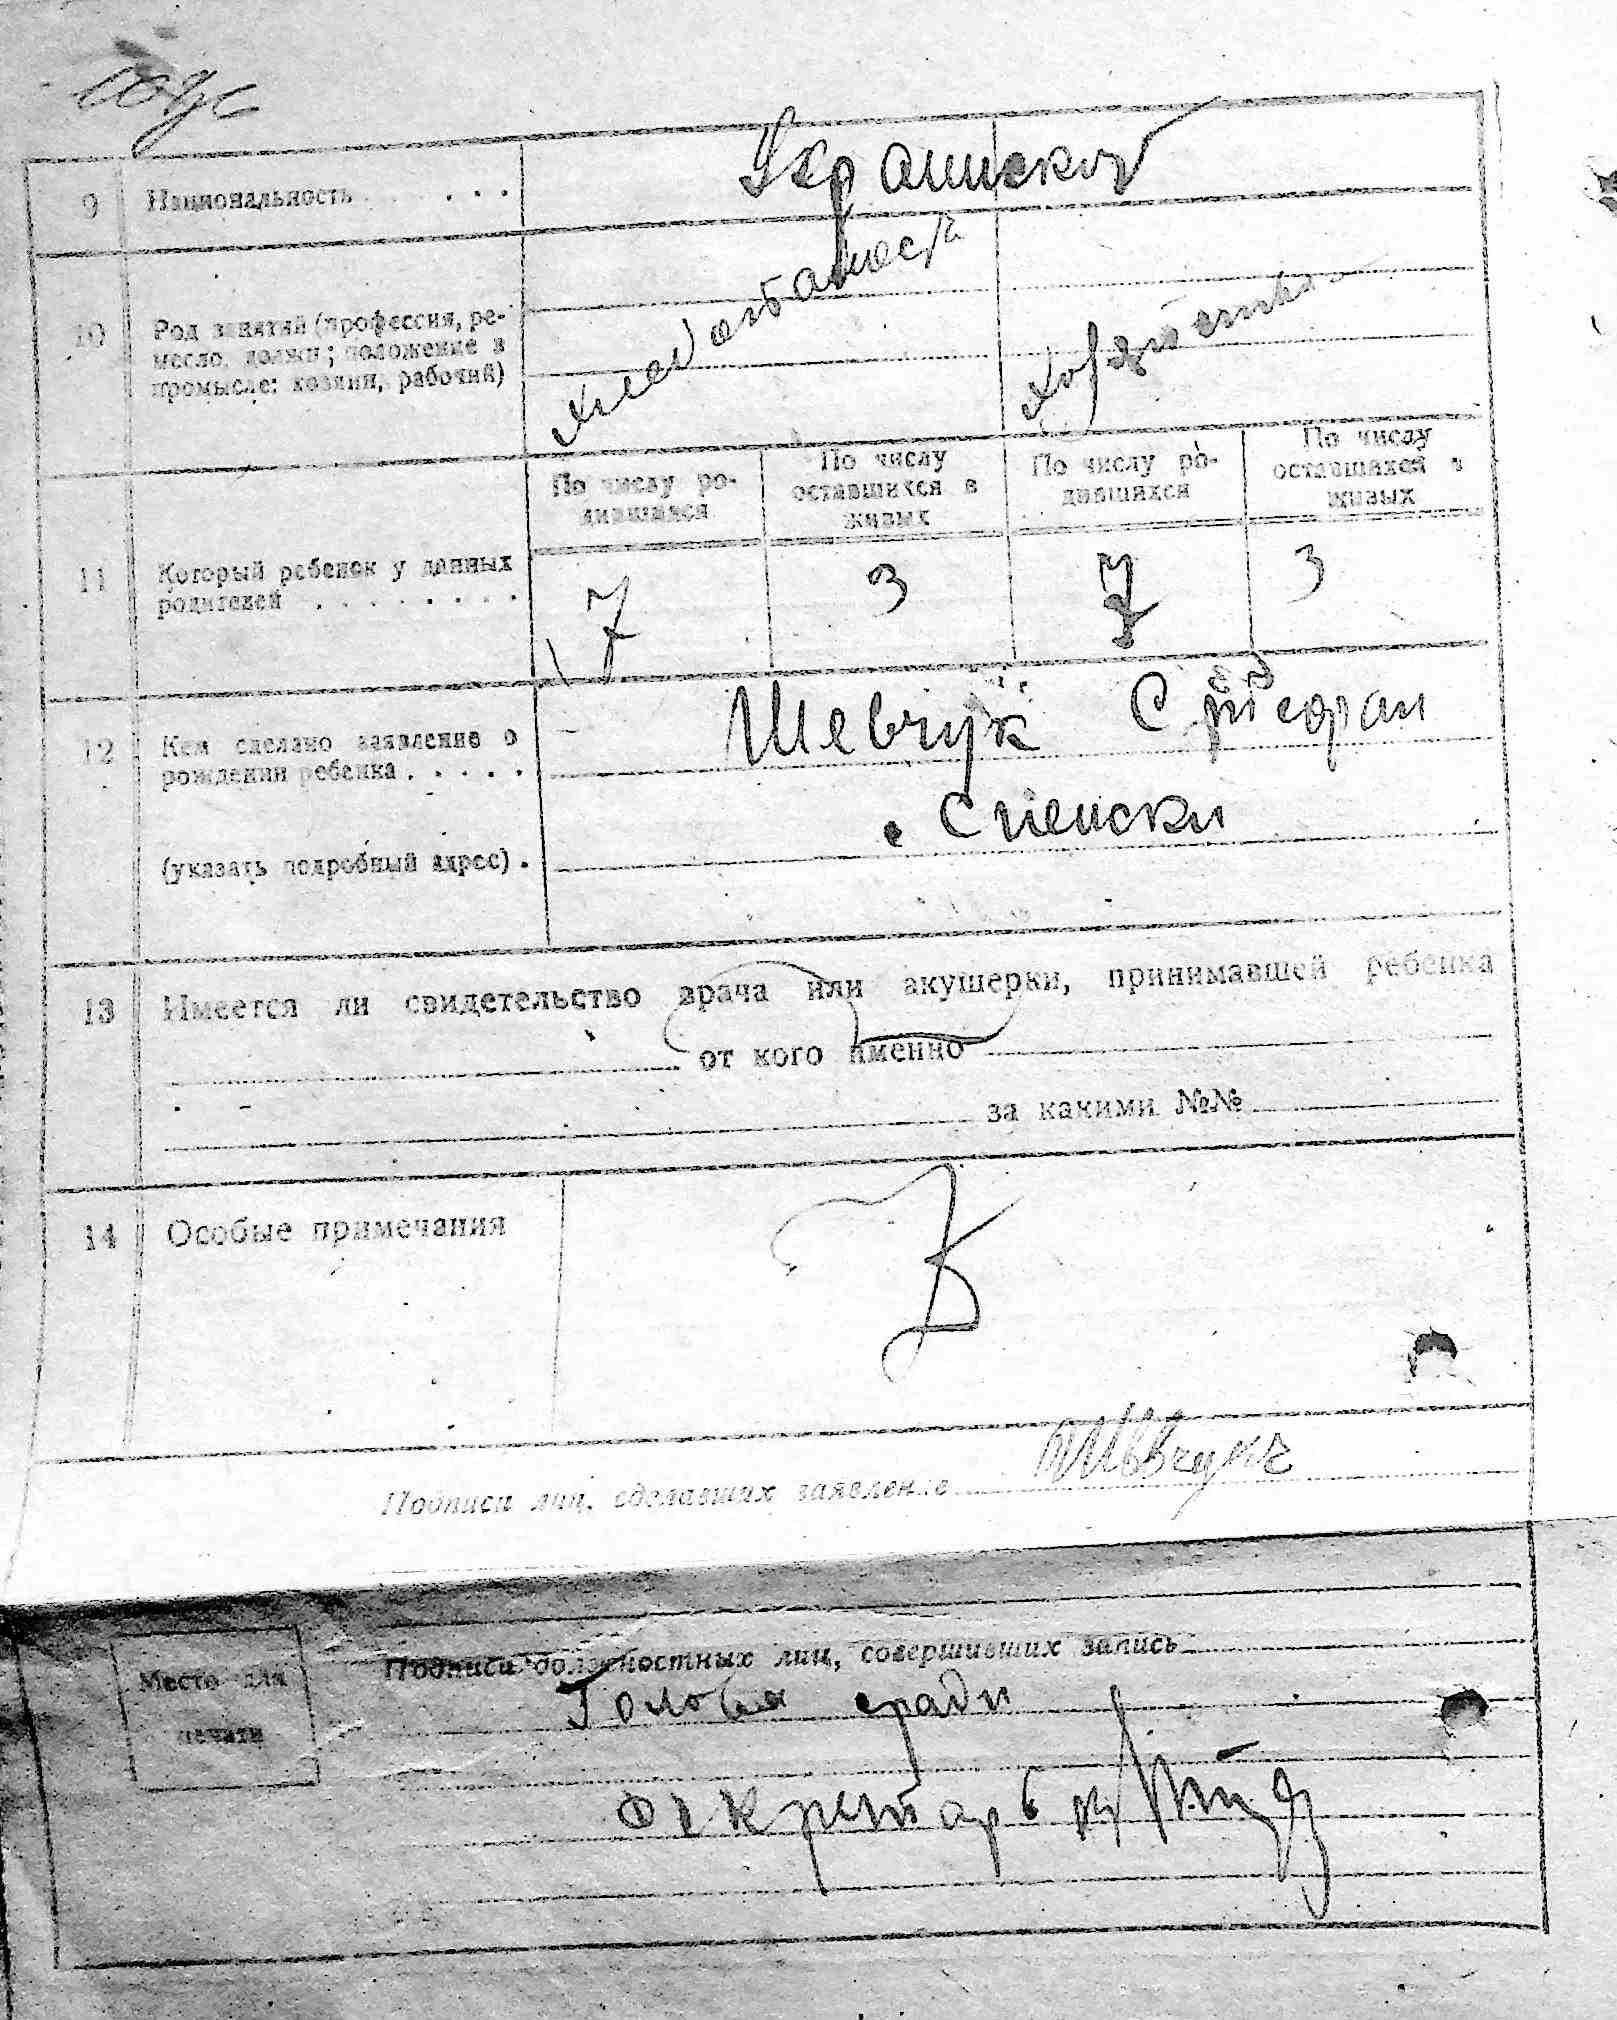 9 Национальность . . . . . .
Украинской
10 Род занятий (профессия, ре-
месло, должн; положение в
промысле: хозяин, рабочий)
По числу ро-
дившихся
По числу
оставшихся в
живых
По числу ро-
дившихся
По числу
оставшихся в
живых
11 Который ребенок у данных
родителей . . . . . . . .
7 3 7 3
12 Кем сделано заявление о
рождении ребенка . . . . .
Шевчук Стефан
(указать подробный адрес) .
13 Имеется ли свидетельство врача или акушерки, принимавшей ребенка
от кого именно
за какими №№
14 Особые примечания
Подписи лиц, сделавших заявление
Место для
печати
Подписи должностных лиц, совершивших запись
Голова сради
Секретарь